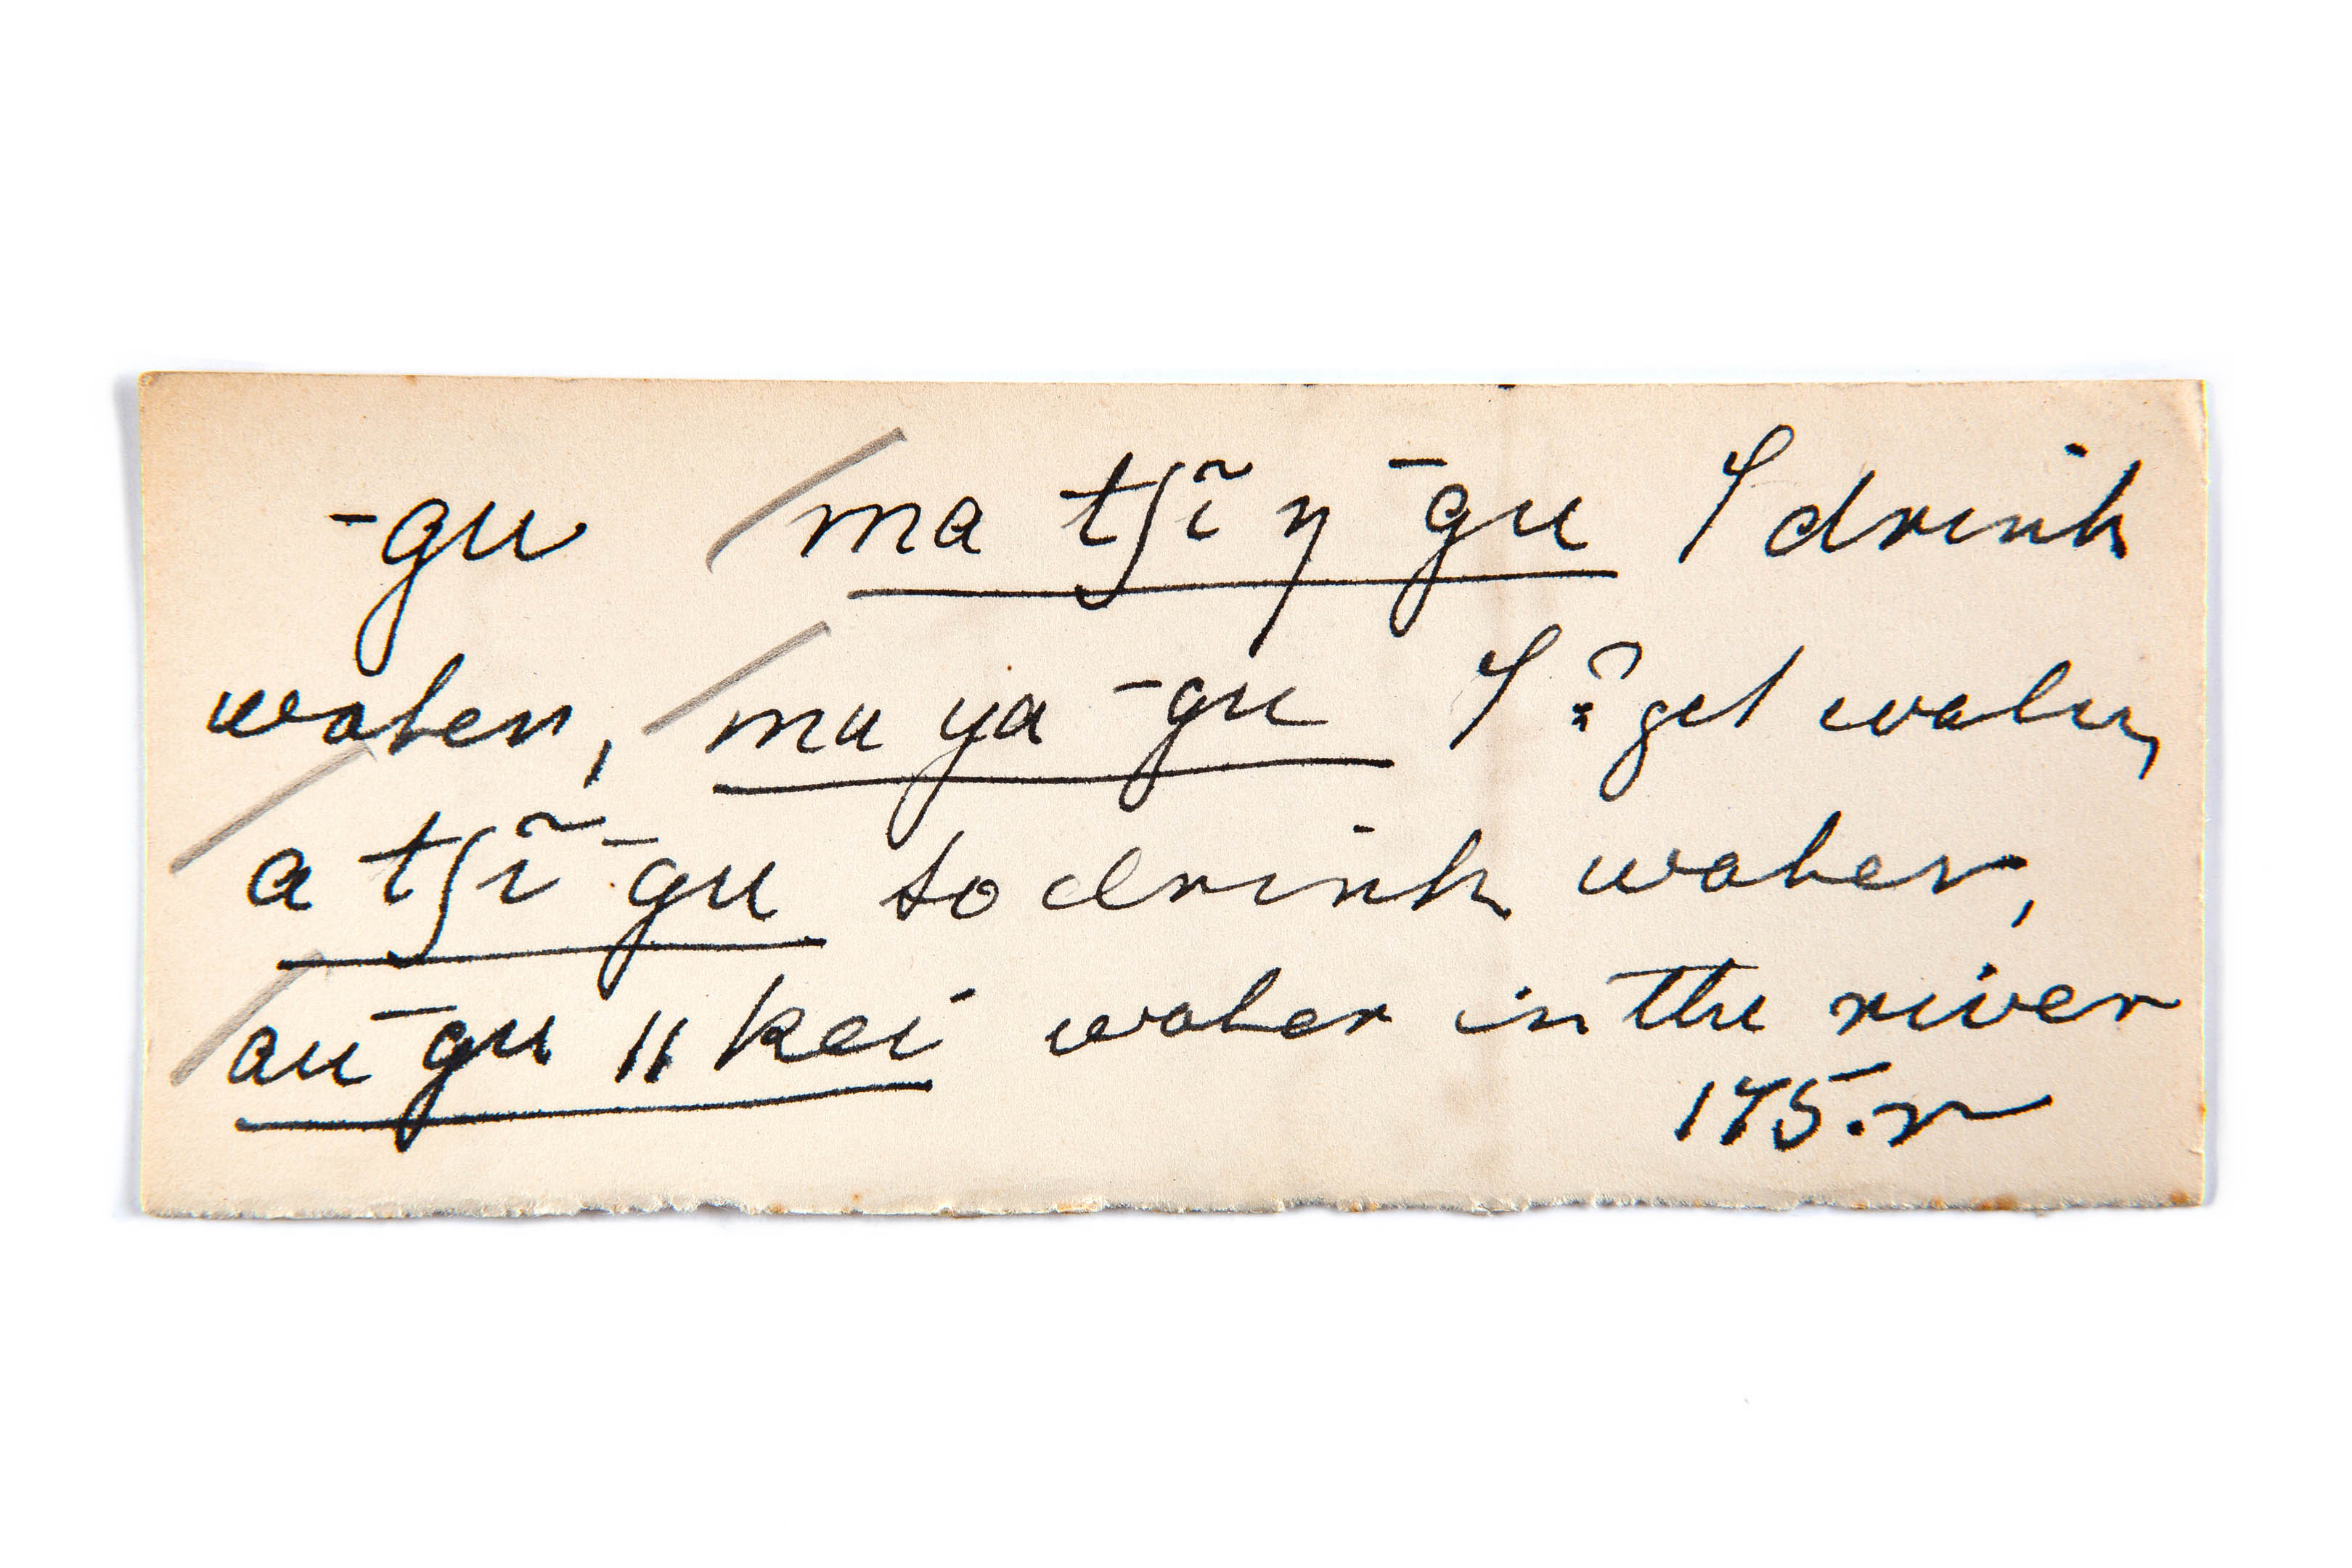 ‾gu ma tʃĩ ŋ ‾gu I drink
water, mu ya ‾gu I ? get water,
a tʃĩ ‾gu to drink water,
au ‾gu ǁ kei water in the river
175.r